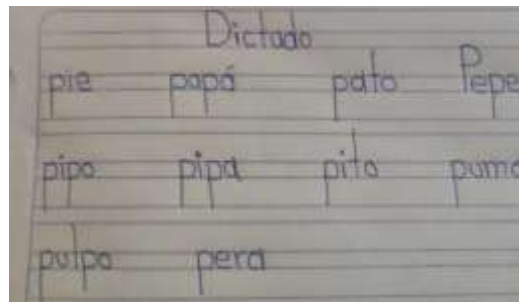 Dictado
pie papá pato Pepe
pipo pipa pito puma
pulpo pera